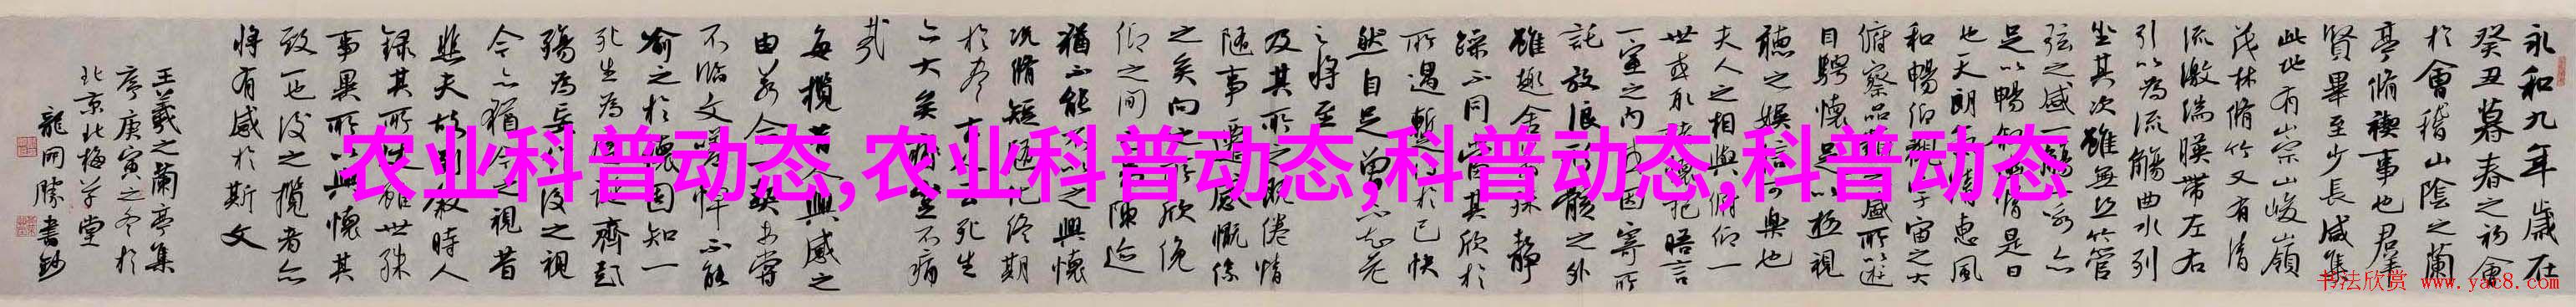 永和九年歲在
癸丑暮春之初會
於會稽山陰之蘭
亭脩禊事也群
賢畢至少長咸集
此地有崇山峻嶺
茂林脩竹又有清
流激湍暎帶左右
引以為流觴曲水列
坐其次雖無絲竹管
弦之盛一觴一詠亦
足以暢叙幽情是日
也天朗氣清惠風
和暢仰觀宇宙之大
俯察品類之盛所以遊
目騁懷足以極視
聽之娛信可樂也
夫人之相與俯仰一
世或取諸懷抱晤言
一室之內或因寄所
託放浪形骸之外
雖趣舍萬殊靜
躁不同當其欣於
所遇暫得於己快
然自足曾不知老
之將至
及其所之既倦情
隨事遷感慨係
之矣向之所欣俛
仰之間陳迹
猶不能不以之興懷
況脩短隨化終期
於盡古人云死生
亦大矣豈不痛
哉
每攬昔人興感之
由若合一契未嘗
不臨文嗟悼不能
喻之於懷固知一
死生為虛誕齊彭
殤為妄作後之視
今亦猶今之視昔
悲夫故列叙時人
錄其所述雖世殊
事異所以興懷其
致一也後之攬者亦
將有感於斯文
王羲之蘭亭集
序庚寅之冬於
北京北梅草堂
龍開勝書鈔
农业科普动态,农业科普动态,科普动态,科普动态
书法欣赏 www.yac8.com